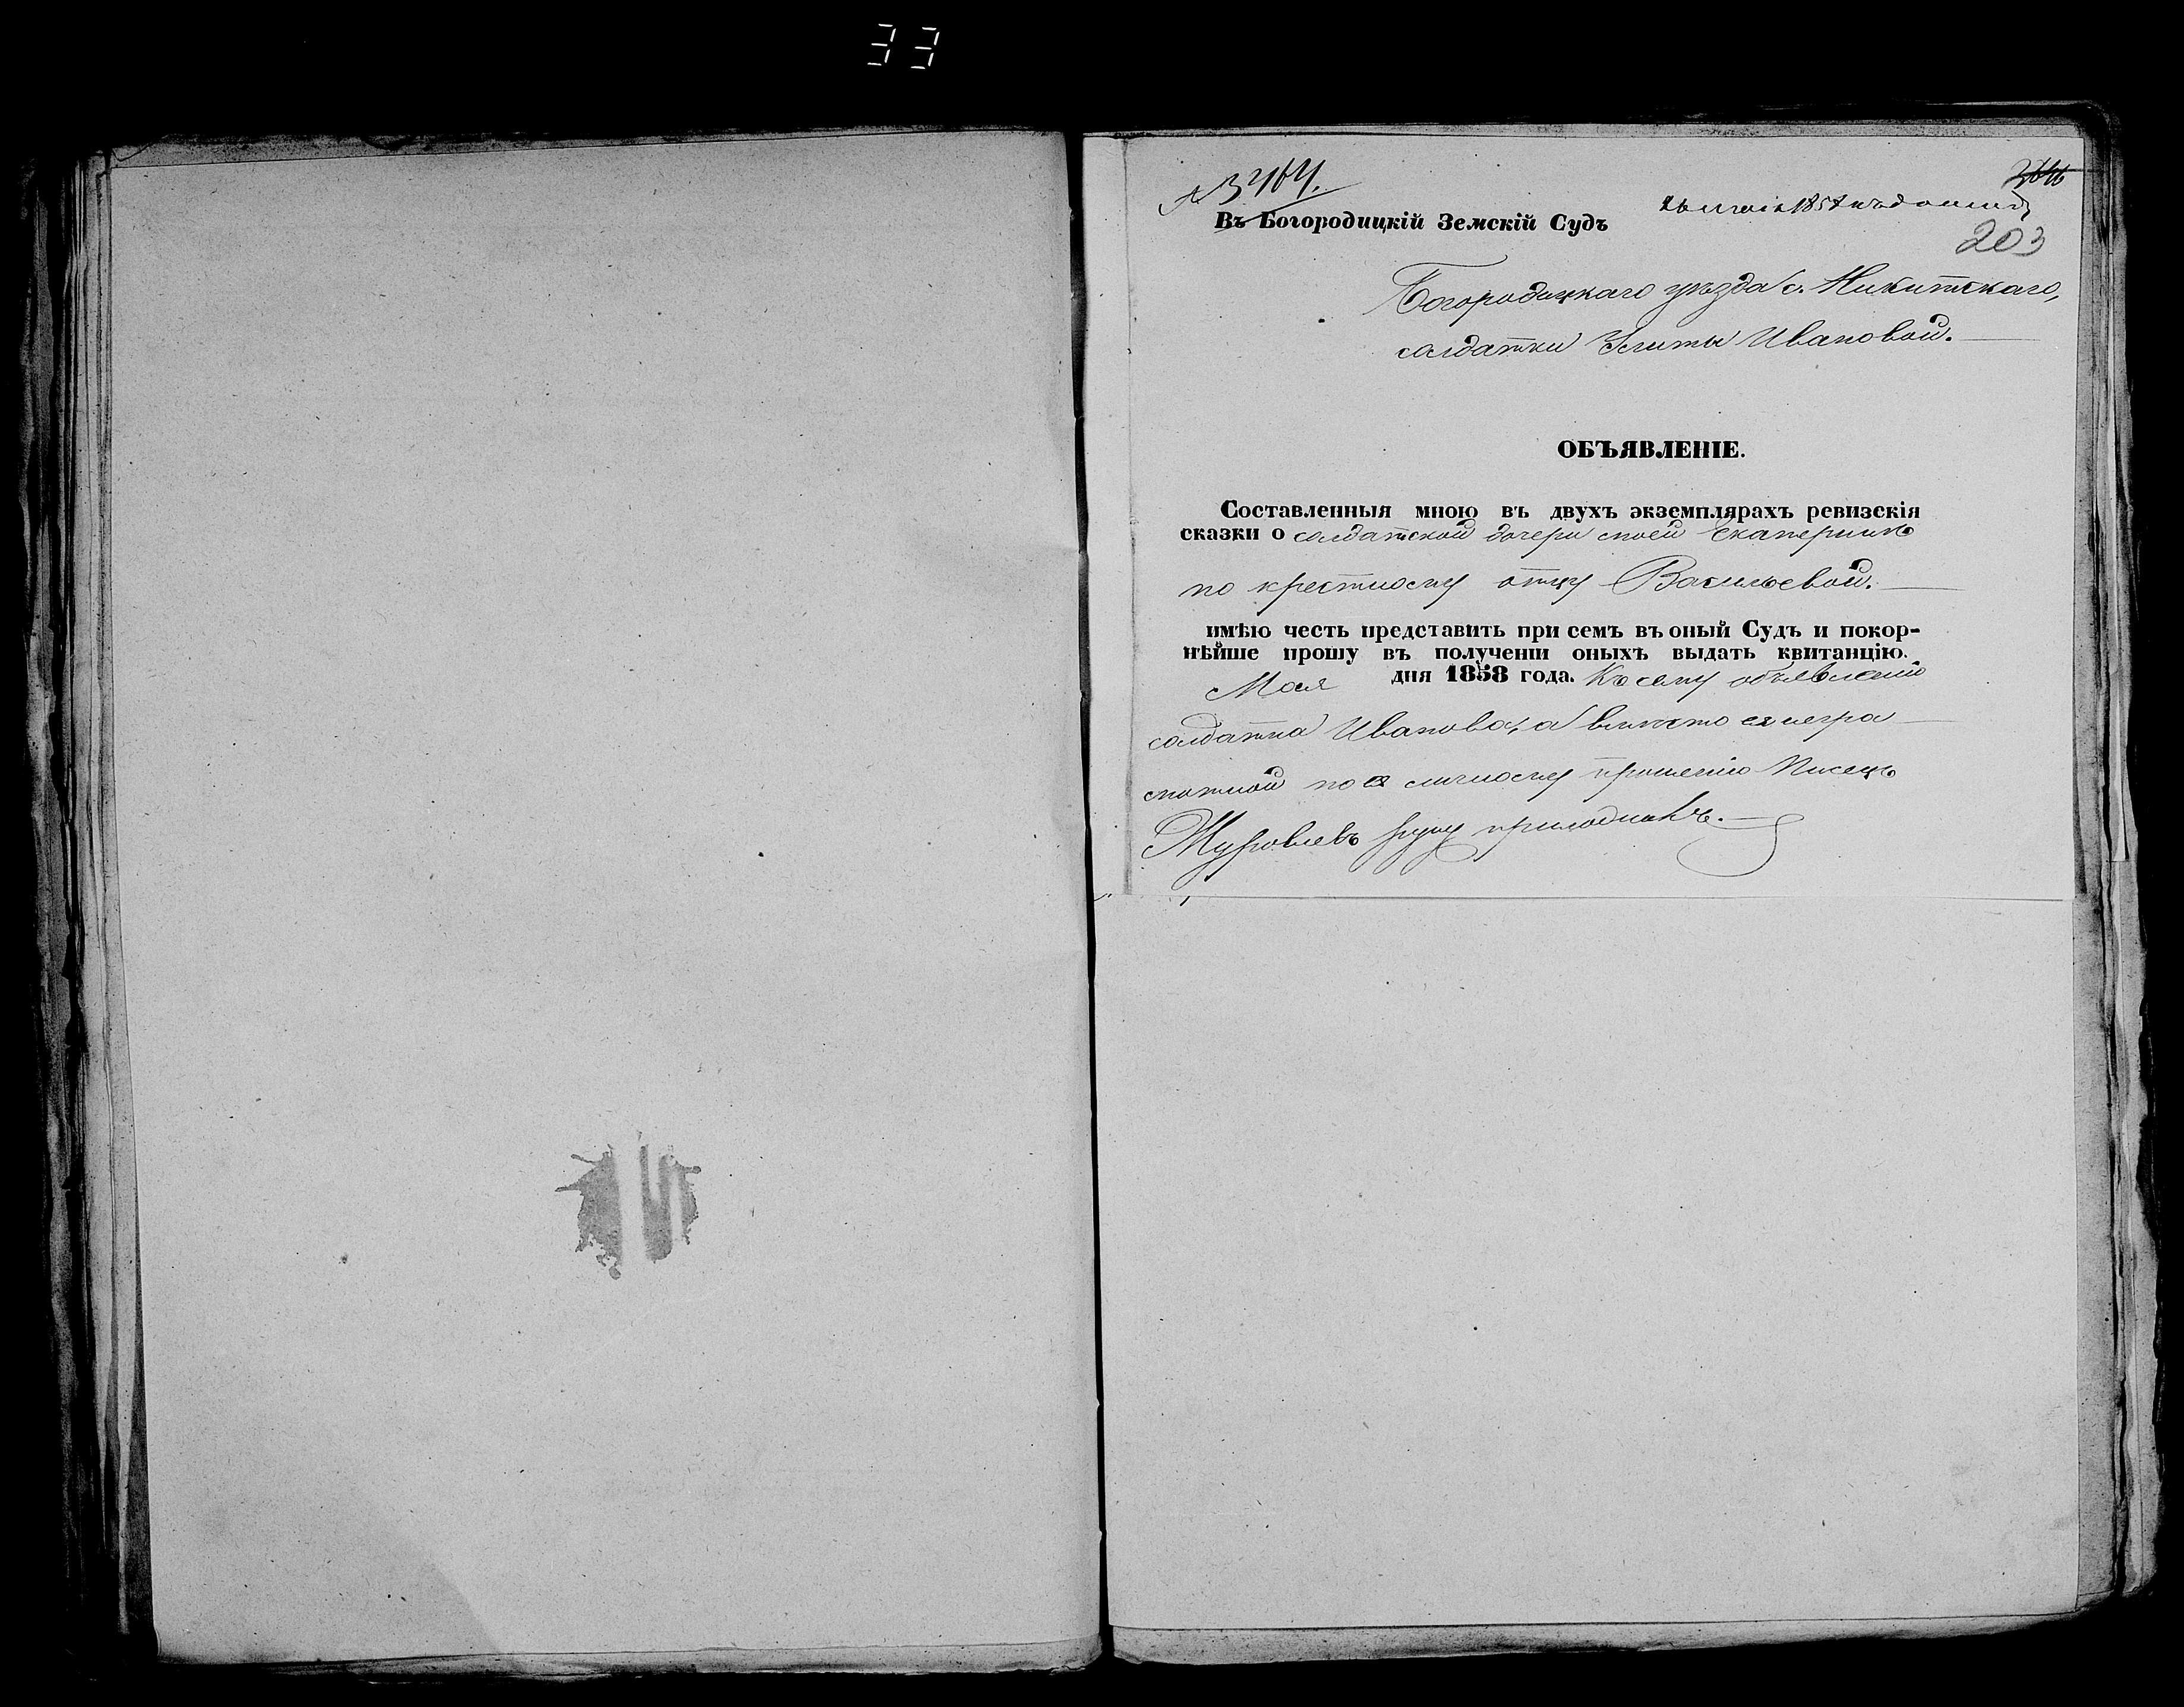 33
№ 3464.
Въ Богородицкій Земскій Судъ
26 мая 1858
203
Богородицкаго уѣзда с. Никитскаго,
солдатки Улиты Ивановой.
ОБЪЯВЛЕНІЕ.
Составленныя мною въ двухъ экземплярахъ ревизскія
сказки о солдатской дочери моей Екатеринѣ
по крестному отцу Васильевой.
имѣю честь представить при семъ въ оный Судъ и покор-
нѣйше прошу въ полученіи оныхъ выдать квитанцію.
Мая дня 1858 года. Къ сему объявленію
солдатка Иванова, а вмѣсто ея негра
мотной по ея личному прошенію Писецъ
Журовлевъ руку приложилъ.